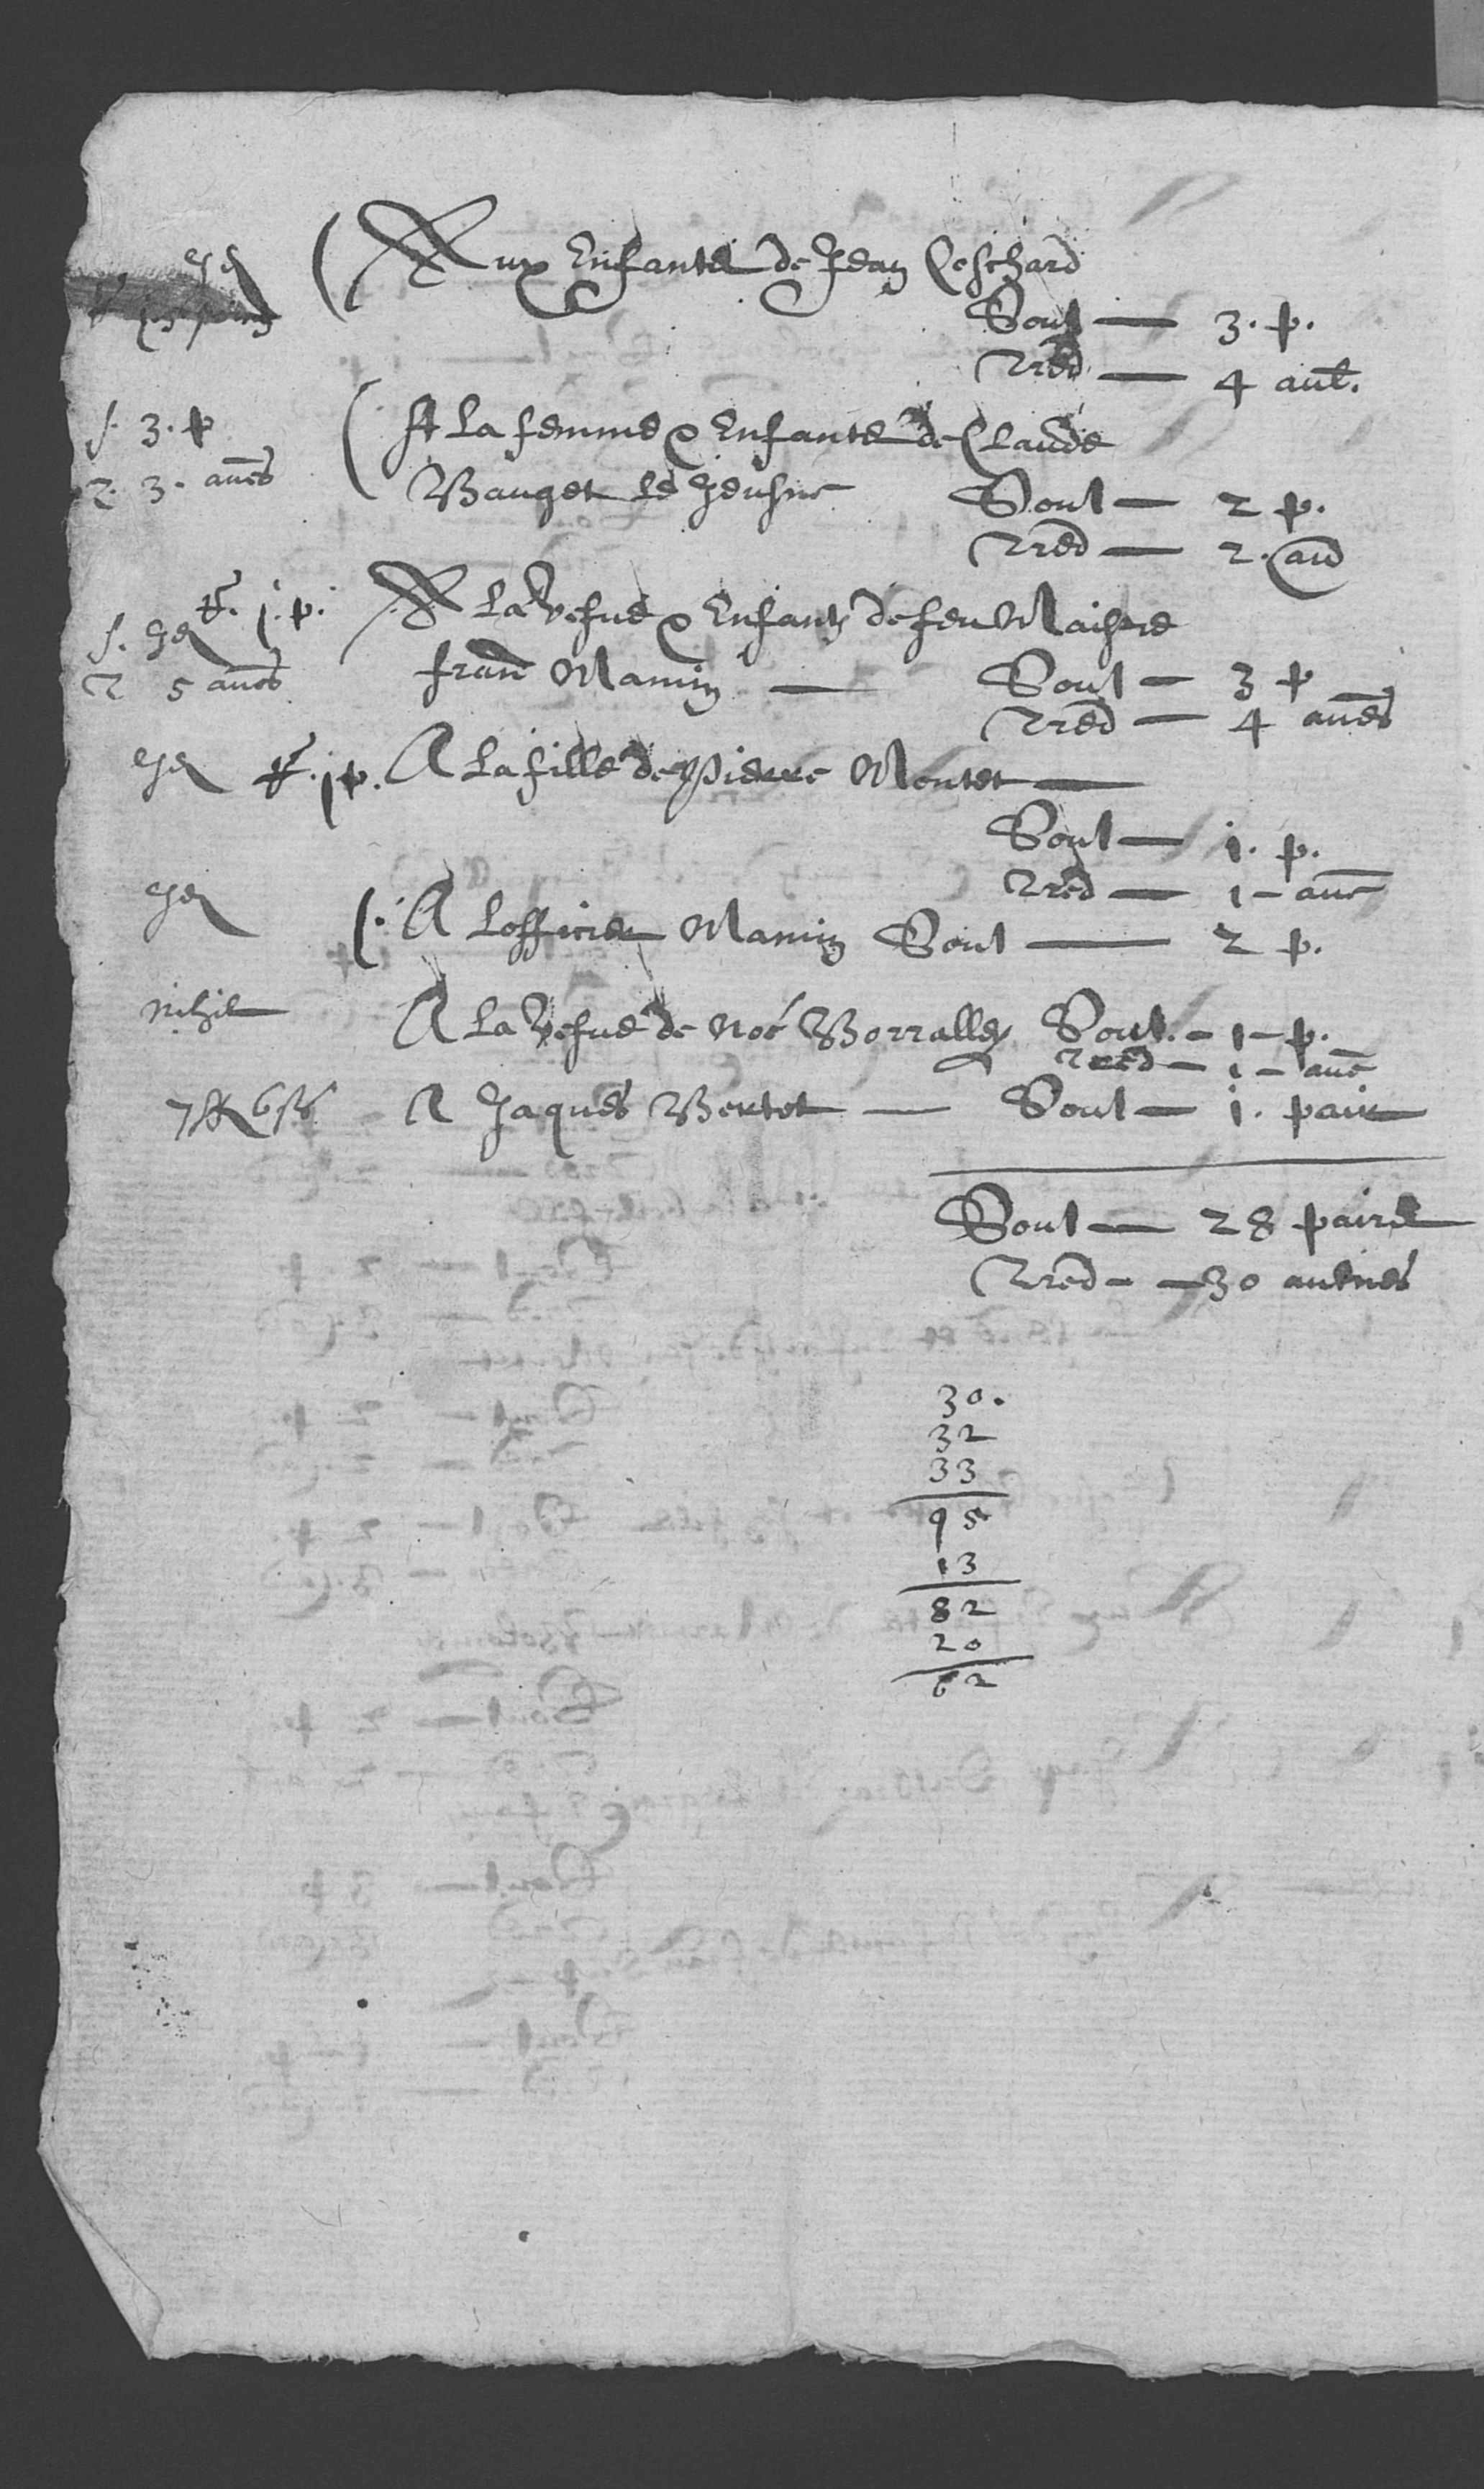 Aux Enfants de Jean Coschard
Soul — 3. p.
Tred — 4 aul.
s. 3. p
A la femme & Enfants de Claude
2. 3. aues
Bauget le Jeusne Soul — 2 p.
Tred — 2. au
R. j. p. A la Vefue & Enfantz de feu Maistre
s.
T 5 aues fran Mamin — Soul — 3 p
Tred — 4 aues
R. j p. A la fille de Pierre Montet —
Soul — i. p.
Tred — 1 — aue
A Lofficier Mamin Soul — 2 p.
nihil A la Vefue de Noé Borralley Soul. — 1 — p.
Tred — 1 — aue
A Jaques Bertet — Soul — i. pair
Soul — 28 pairs
Tred — — 30 aulnes
30.
32
33
95
13
82
20
62